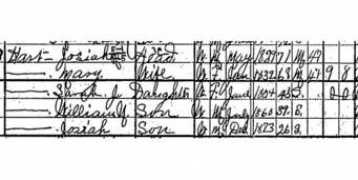 Hart Josiah Head W M May 1827 71 M 47
— Mary Wife W F Jan 1832 68 M 47 9 8
— Sarah J Daughter W F June 1854 45 S
— William J Son W M July 1860 39 S
— Josiah Son W M Dec 1873 26 S